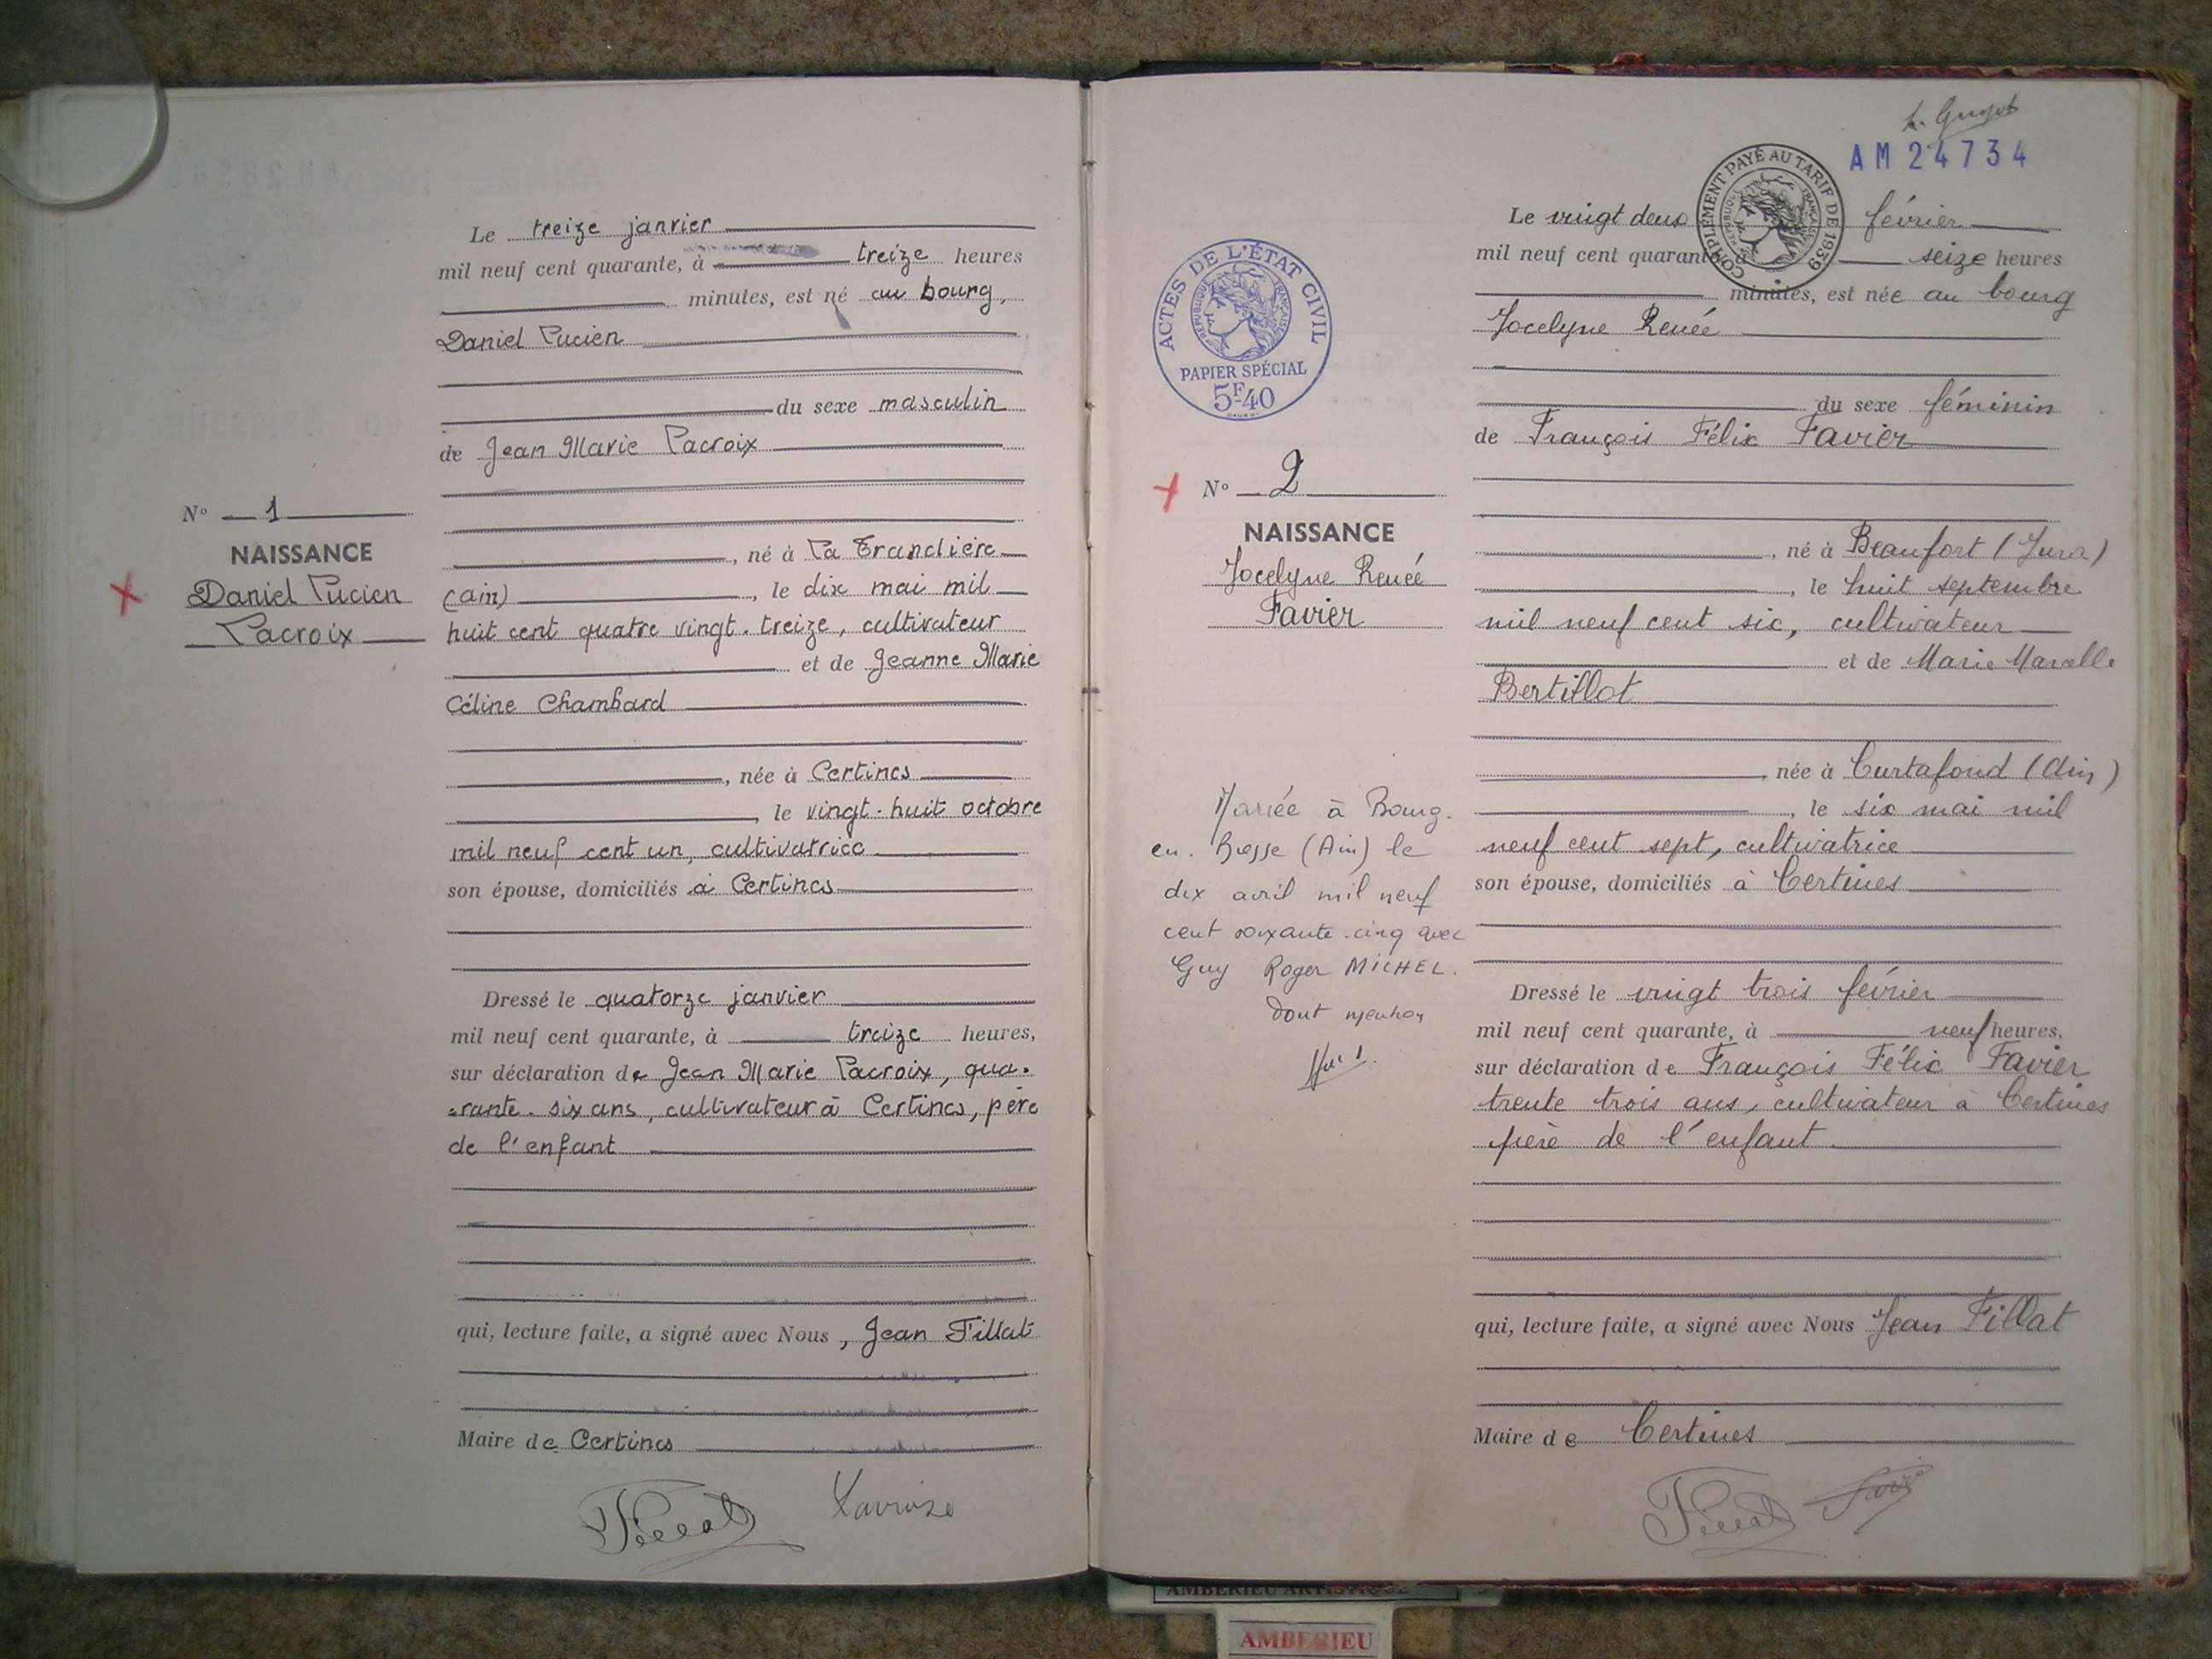 Le treize janvier
mil neuf cent quarante, à treize heures
minutes, est né au bourg,
Daniel Lucien
du sexe masculin
de Jean Marie Lacroix
, né à La Tranclière
(ain) , le dix mai mil
huit cent quatre vingt-treize, cultivateur
et de Jeanne Marie
Céline Chambard
, née à Certines
, le vingt-huit octobre
mil neuf cent un, cultivatrice
son épouse, domiciliés à Certines
Dressé le quatorze janvier
mil neuf cent quarante, à treize heures,
sur déclaration de Jean Marie Lacroix, qua-
-rante-six ans, cultivateur à Certines, père
de l'enfant
qui, lecture faite, a signé avec Nous, Jean Fillat
Maire de Certines
N° 1
NAISSANCE
Daniel Lucien
Lacroix
AM 24734
COMPLÉMENT PAYÉ AU TARIF DE 1939
RÉPUBLIQUE FRANÇAISE
ACTES DE L'ÉTAT CIVIL
RÉPUBLIQUE FRANÇAISE
PAPIER SPÉCIAL
5F40
N° 2
NAISSANCE
Jocelyne Renée
Favier
Mariée à Bourg-
en-Bresse (Ain) le
dix avril mil neuf
cent soixante-cinq avec
Guy Roger MICHEL.
Dont mention
Le vingt deux février
mil neuf cent quarante, à seize heures
minutes, est née au bourg
Jocelyne Renée
du sexe féminin
de François Félix Favier
, né à Beaufort (Jura)
, le huit septembre
mil neuf cent six, cultivateur
et de Marie Marcelle
Bertillot
, née à Curtafond (Ain)
, le six mai mil
neuf cent sept, cultivatrice
son épouse, domiciliés à Certines
Dressé le vingt trois février
mil neuf cent quarante, à neuf heures,
sur déclaration de François Félix Favier
trente trois ans, cultivateur à Certines
père de l'enfant.
qui, lecture faite, a signé avec Nous Jean Fillat
Maire de Certines
AMBERIEU ARTISTIQUE
AMBERIEU